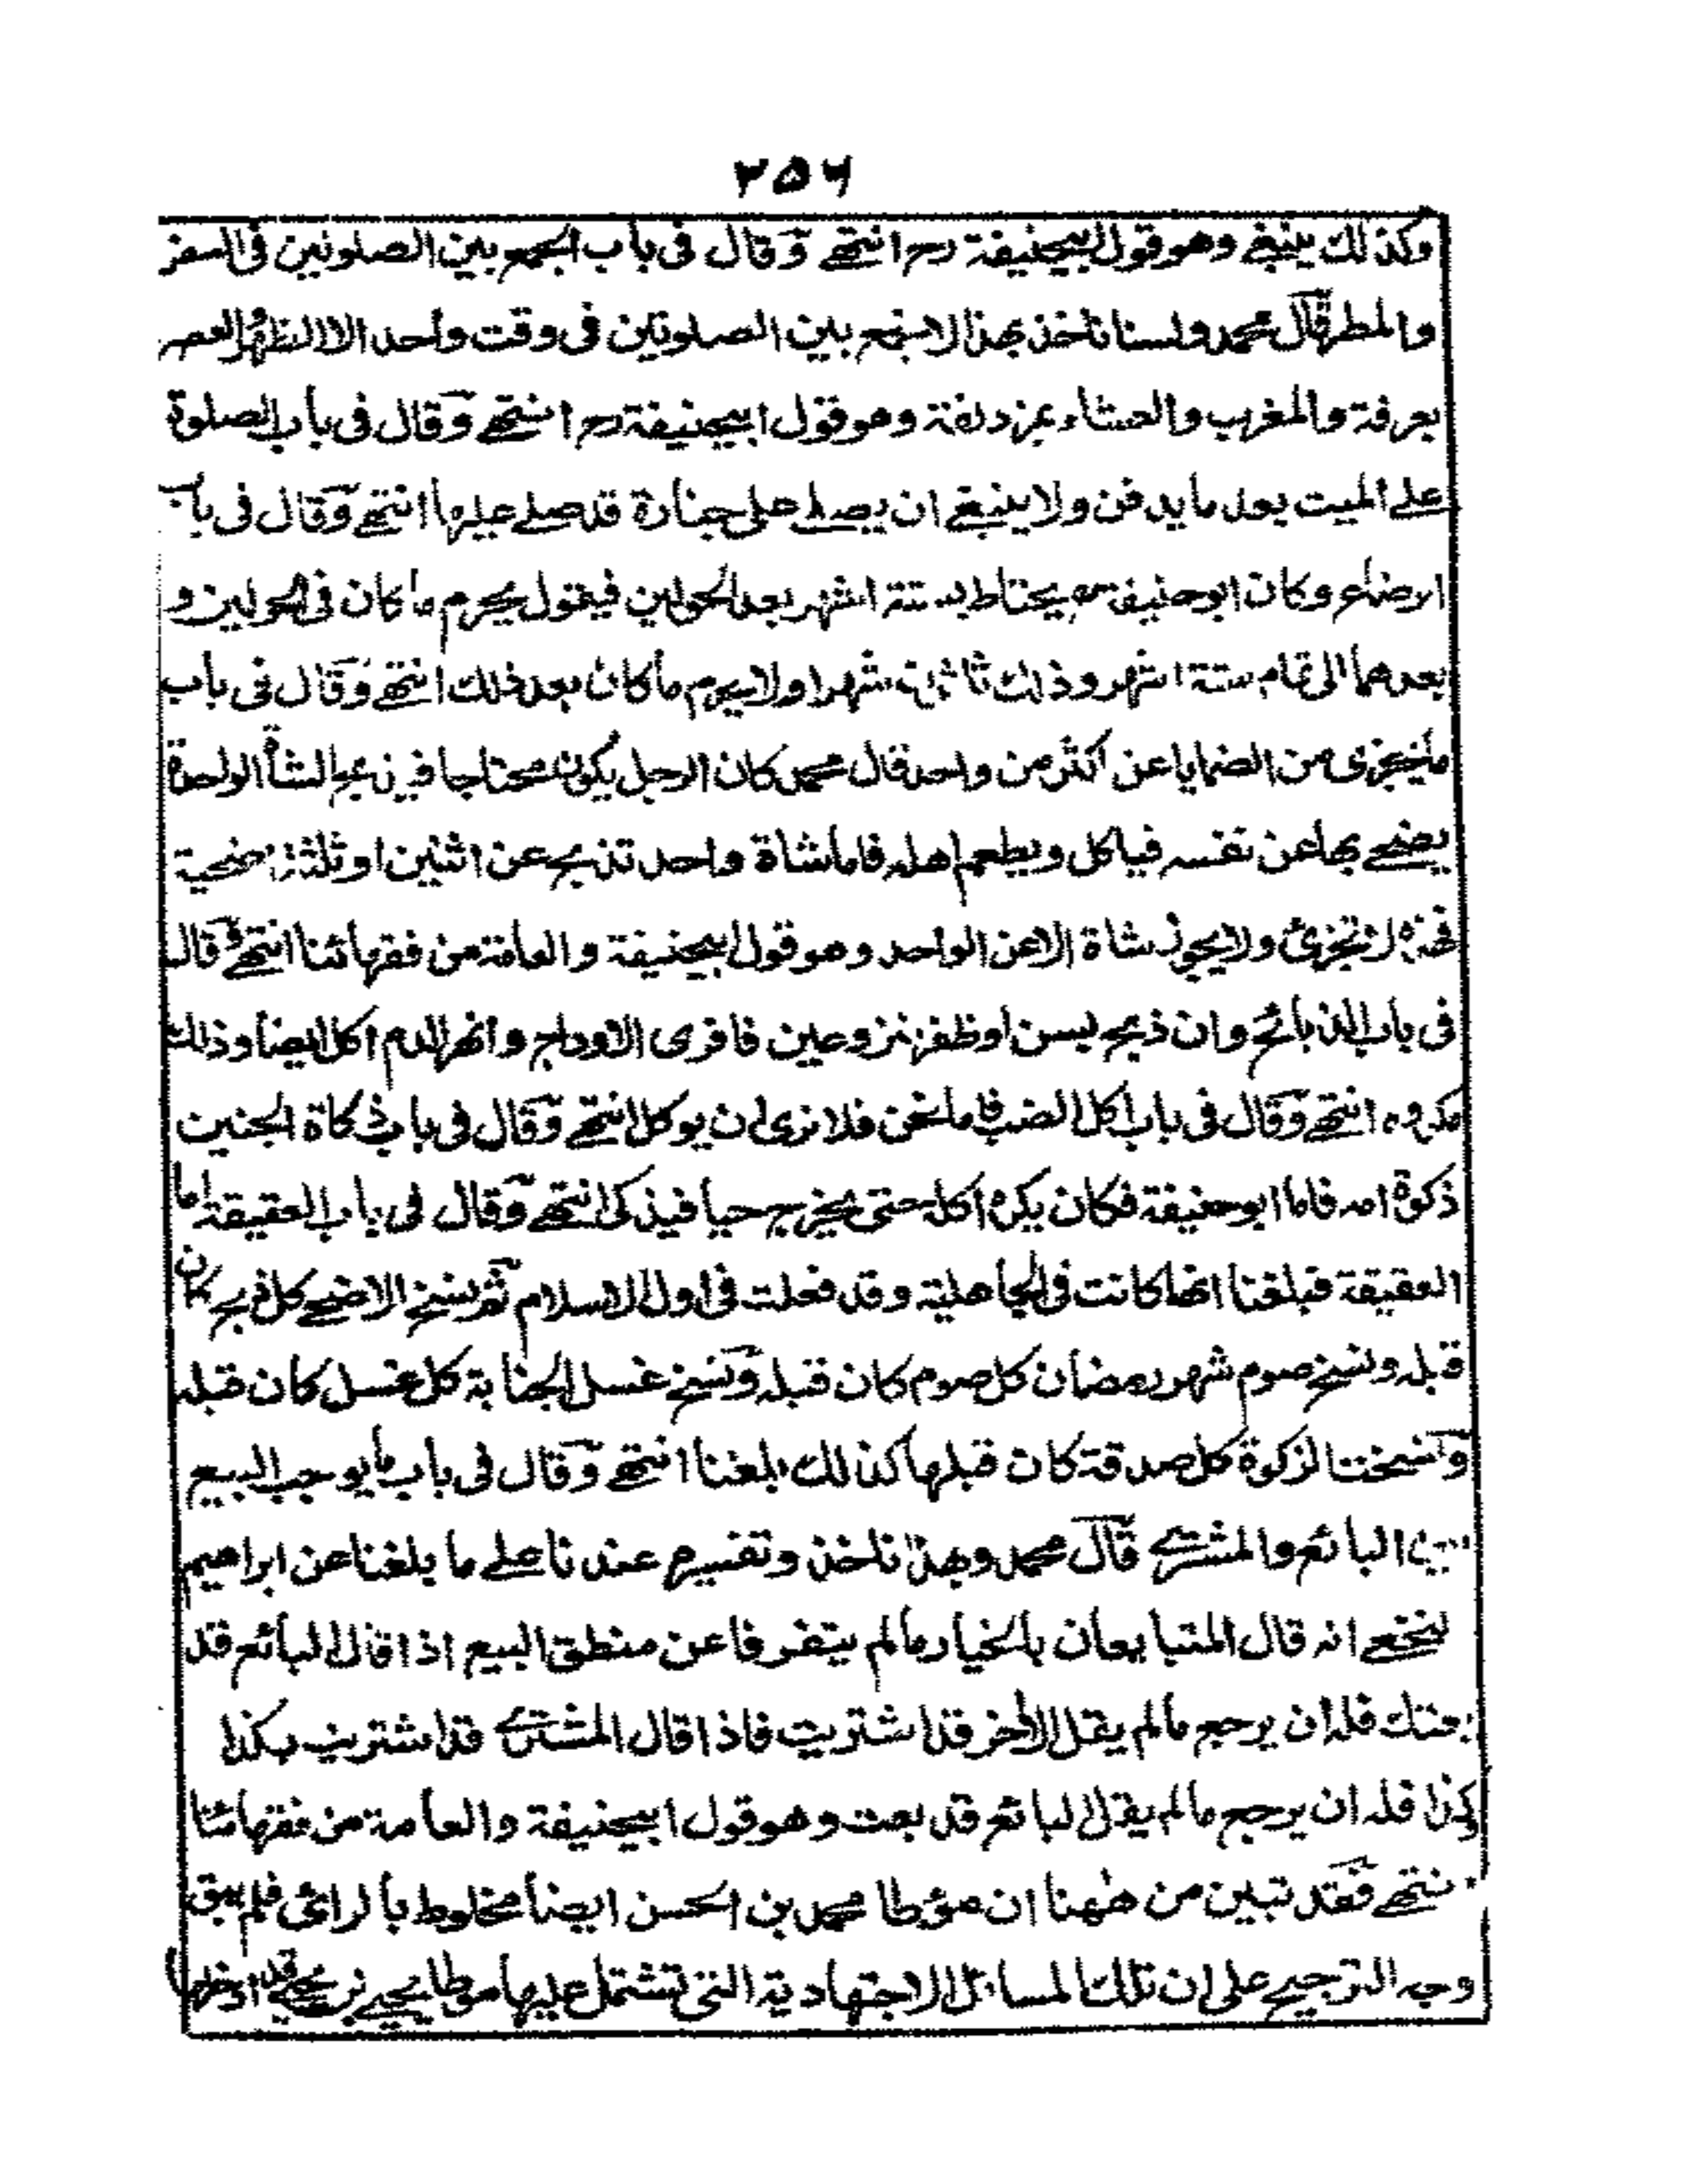 ٢٥٦
وكذلك ينبغے وهو قول ابيحنيفة رح انتهے وقال فى باب الجمع بين الصلوتين فى السفر
والمطر قال محمد ولسنا ناخذ بهذا لا نجمع بين الصلوتين فى وقت واحد الا الظهر والعصر
بعرفة والمغرب والعشاء بمزدلفة وهو قول ابيحنيفة رح انتهے وقال فى باب الصلوة
علے الميت بعد ما يدفن ولا ينبغے ان يصلے على جنازة قد صلے عليها انتهے وقال فى باب
الرضاع وكان ابو حنيفة يحتاط بستة اشهر بعد الحولين فيقول يحرم ما كان فى الحولين و
بعدهما الى تمام ستة اشهر وذلك ثلثون شهرا ولا يحرم ما كان بعد ذلك انتهے وقال فى باب
ما يجزى من الضحايا عن اكثر من واحد قال محمد كان الرجل يكون محتاجا فيذبح الشاة الواحدة
يضحے بها عن نفسه فياكل ويطعم اهله فاما شاة واحد تذبح عن اثنين او ثلثة اضحية
فهذه لا تجزئ ولا يجوز شاة الا عن الواحد وهو قول ابيحنيفة والعامة من فقهائنا انتهے وقال
فى باب الذبائح وان ذبح بسن او ظفر منزوعين فافرى الاوداج وانهر الدم اكل ايضا وذلك
مكروه انتهے وقال فى باب اكل الضب فاما نحن فلا نرى ان يوكل انتهے وقال فى باب ذكاة الجنين
ذكوة امه فاما ابو حنيفة فكان يكره اكله حتى يخرج حيا فيذكى انتهے وقال فى باب العقيقة اما
العقيقة فبلغنا انها كانت فى الجاهلية وقد فعلت فى اول الاسلام ثم نسخ الاضحے كل ذبح كان
قبله ونسخ صوم شهر رمضان كل صوم كان قبله ونسخ غسل الجنابة كل غسل كان قبله
ونسخت الزكوة كل صدقة كان قبلها كذلك بلغنا انتهے وقال فى باب ما يوجب البيع
بين البائع والمشترے قال محمد وبهذا ناخذ وتفسيره عندنا علے ما بلغنا عن ابراهيم
النخعے انه قال المتبايعان بالخيار مالم يتفرقا عن منطق البيع اذا قال البائع قد
بعتك فله ان يرجع مالم يقل الآخر قد اشتريت فاذا قال المشترے قد اشتريت بكذا
وكذا فله ان يرجع مالم يقل البائع قد بعت وهو قول ابيحنيفة والعامة من فقهائنا
انتهے فقد تبين من ههنا ان مؤطا محمد بن الحسن ايضا مخلوط بالرائى فلم يبق
وجه الترجيح على ان تلك المسائل الاجتهادية التى تشتمل عليها موطا يحيے بن يحيے قد ادخلها